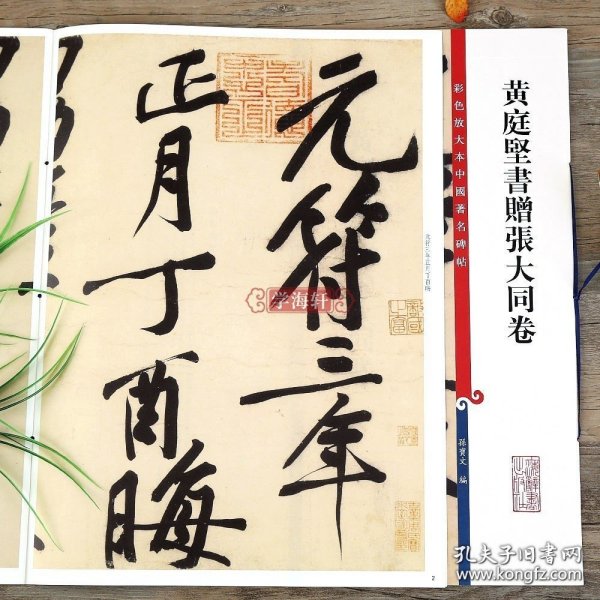 元符三年
正月丁酉晦
元符三年正月丁酉晦
学海轩
2
彩色放大本中國著名碑帖
黄庭堅書贈張大同卷
孫寶文 編
孔夫子旧书网